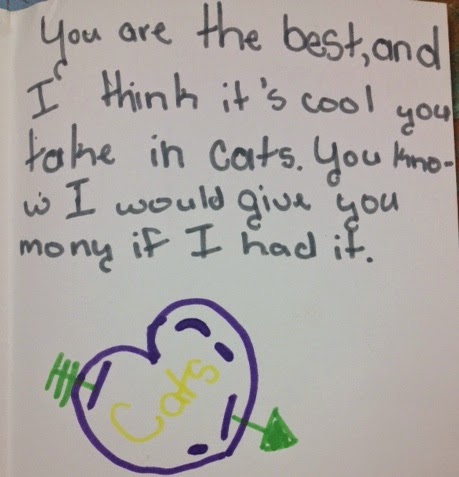 You are the best, and
I think it's cool you
take in cats. You kno-
w I would give you
mony if I had it.
Cats